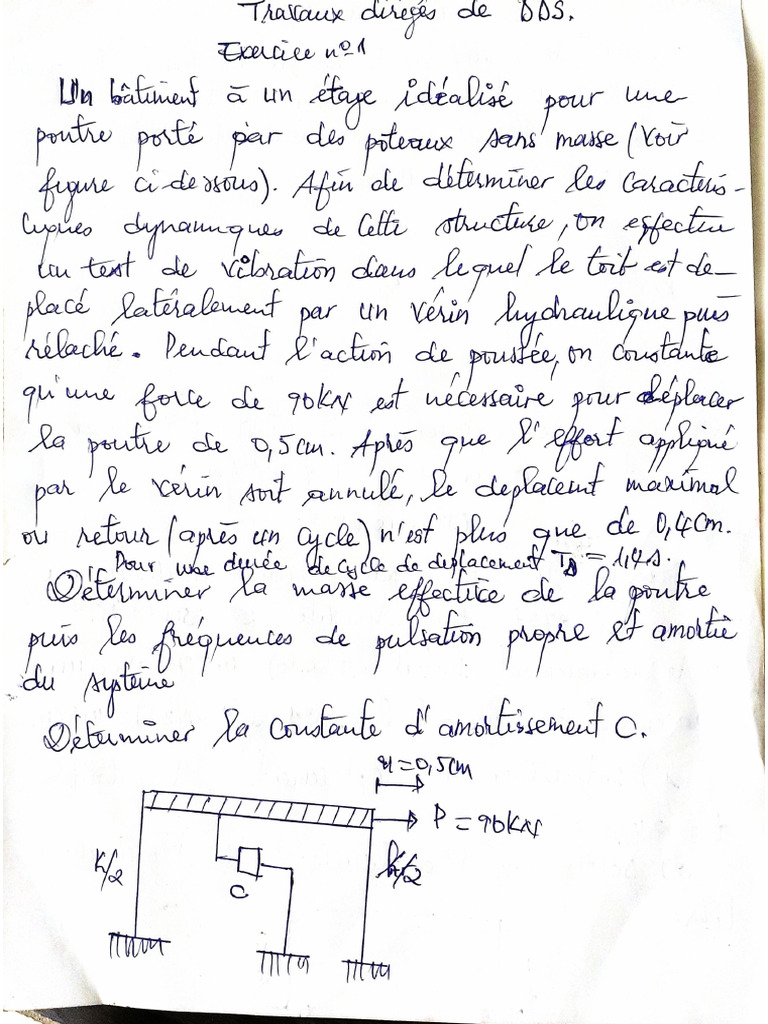 Travaux dirigés de DDS.
Exercice n°1
Un bâtiment à un étage idéalisé pour une
poutre porté par des poteaux sans masse (voir
figure ci-dessous). Afin de déterminer les caracteris-
tiques dynamiques de cette structure, on effectue
un test de vibration dans lequel le toit est de-
placé latéralement par un vérin hydraulique puis
rélaché. Pendant l'action de poussée, on constate
qu'une force de 90KN est nécessaire pour déplacer
la poutre de 0,5cm. Après que l'effort appliqué
par le vérin soit annulé, le deplacemt maximal
ou retour (après un cycle) n'est plus que de 0,4cm.
Pour une durée de cycle de deplacement TD = 1,4s.
Déterminer la masse effective de la poutre
puis les fréquences de pulsation propre et amortie
du système
Déterminer la constante d'amortissement C.
u=0,5cm
P = 90KN
K/2
K/2
C